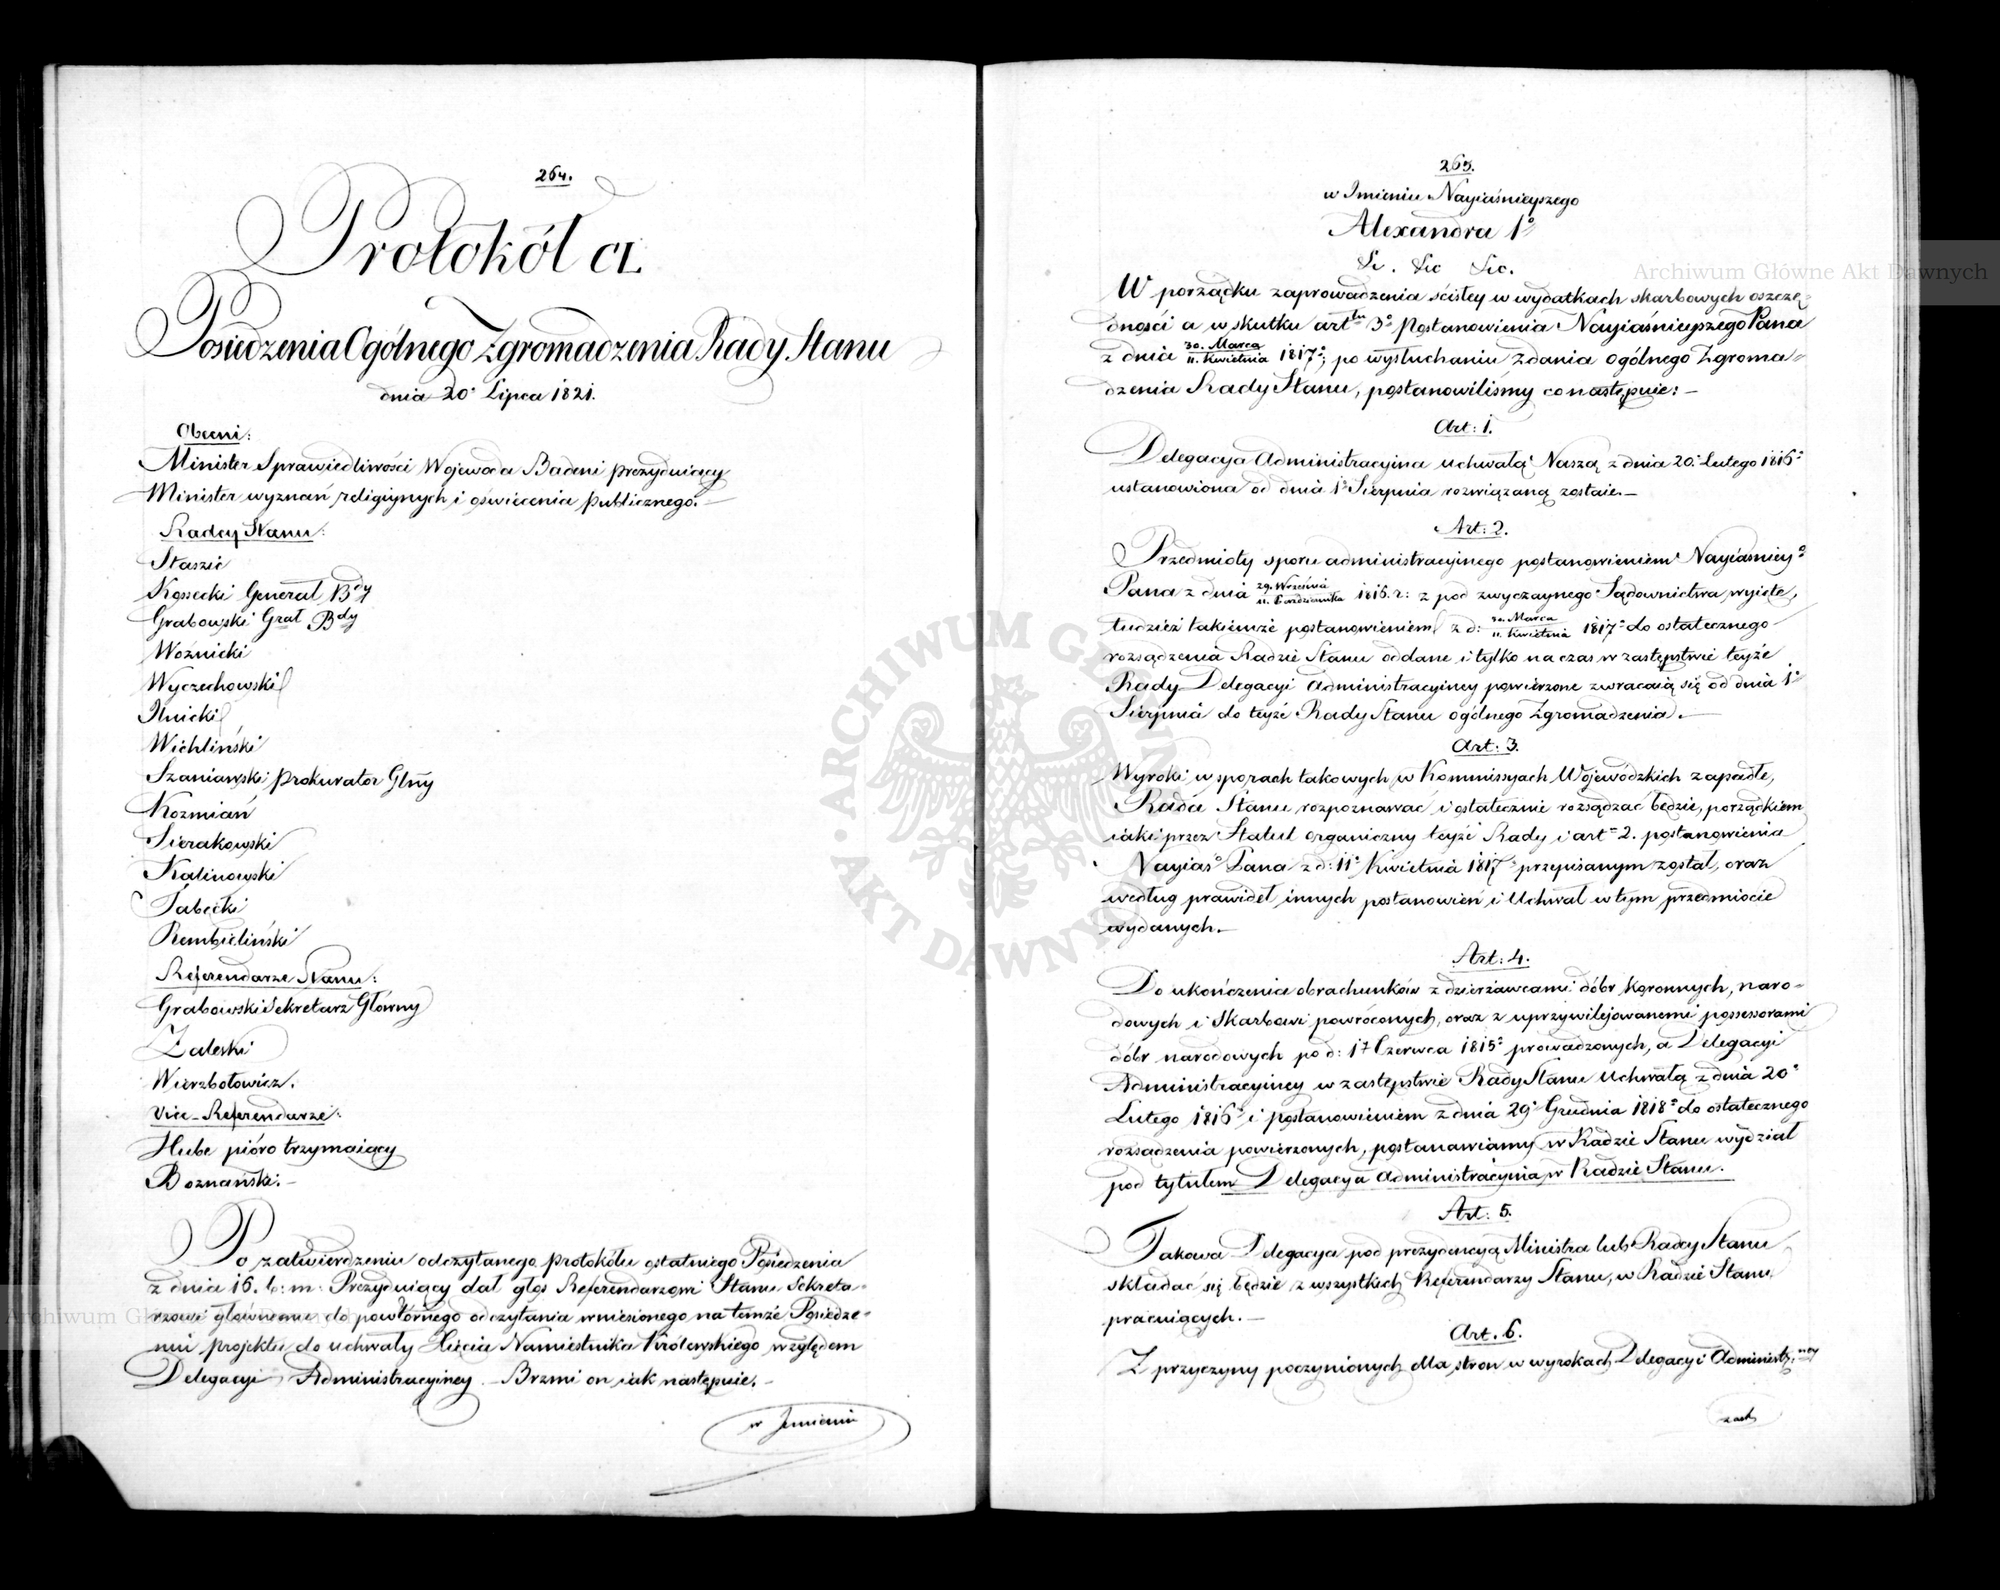 264.
Protokół CL
Posiedzenia Ogólnego Zgromadzenia Rady Stanu
dnia 20° Lipca 1821.
Obecni:
Minister Sprawiedliwości Wojewoda Badeni prezyduiący
Minister wyznań religiynych i oświecenia publicznego.—
Radcy Stanu:
Staszic
Kossecki Generał Bdy
Grabowski Grał Bdy
Woźnicki
Wyczechowski
Ilnicki
Wichliński
Szaniawski prokurator Glny
Kozmian
Sierakowski
Kalinowski
Tabęcki
Rembieliński
Referendarze Stanu:
Grabowski Sekretarz Główny
Zaleski
Wierzbołowicz.
Vice-Referendarze:
Hube pióro trzymaiący
Boznański.—
Po zatwierdzeniu odczytanego protokółu ostatniego Posiedzenia
z dnia 16. b: m: Prezyduiący dał głos Referendarzowi Stanu Sekreta-
rzowi głównemu do powtórnego odczytania wniesionego na temże Posiedze-
niu projektu do uchwały Xięcia Namiestnika Królewskiego względem
Delegacyi Administracyiney.— Brzmi on iak następuie.—
w Imieniu
265.
w Imieniu Nayiaśnieyszego
Alexandra 1°
&c. &c &c.
W porządku zaprowadzenia ścisłey w wydatkach skarbowych oszczę-
dności a w skutku artłu 3° Postanowienia Nayiaśnieyszego Pana
z dnia 30. Marca / 11. Kwietnia 1817°; po wysłuchaniu Zdania ogólnego Zgroma-
dzenia Rady Stanu, postanowiliśmy co następuie:—
Art: 1.
Delegacya Administracyina uchwałą Naszą z dnia 20° Lutego 1816°
ustanowiona od dnia 1° Sierpnia rozwiązaną zostaie.—
Art: 2.
Przedmioty sporu administracyinego postanowieniem Nayiaśniey°
Pana z dnia 29. Września / 11. Października 1816. r: z pod zwyczaynego Sądownictwa wyięte,
tudzież takiemże postanowieniem z d: 30. Marca / 11. Kwietnia 1817° do ostatecznego
rozsądzenia Radzie Stanu oddane i tylko na czas w zastępstwie teyże
Rady Delegacyi Administracyiney powierzone zwracaią się od dnia 1°
Sierpnia do teyże Rady Stanu ogólnego Zgromadzenia.—
Art: 3.
Wyroki w sporach takowych w Kommissyach Wojewódzkich zapadłe,
Rada Stanu rozpoznawać i ostatecznie rozsądzać będzie, porządkiem
iaki przez Statut organiczny teyże Rady i art= 2. postanowienia
Nayiaś° Pana z d: 11° Kwietnia 1817° przepisanym został, oraz
według prawideł innych postanowień i Uchwał w tym przedmiocie
wydanych.—
Art: 4.
Do ukończenia obrachunków z dzierżawcami dóbr koronnych, naro-
dowych i Skarbowi powróconych, oraz z uprzywilejowanemi possessorami
dóbr narodowych po d: 1° Czerwca 1815° prowadzonych, a Delegacyi
Administracyiney w zastępstwie Rady Stanu Uchwałą z dnia 20°
Lutego 1816° i postanowieniem z dnia 29° Grudnia 1818° do ostatecznego
rozsądzenia powierzonych, postanawiamy w Radzie Stanu wydział
pod tytułem Delegacya Administracyina w Radzie Stanu.
Art: 5.
Takowa Delegacya pod prezydencyą Ministra lub Radcy Stanu
składać się będzie z wszystkich Referendarzy Stanu, w Radzie Stanu
pracuiących.—
Art. 6.
Z przyczyny poczynionych dla stron w wyrokach Delegacyi Administr:ney
Archiwum Główne Akt Dawnych
Archiwum Główne Akt Dawnych
ARCHIWUM GŁÓWNE • AKT DAWNYCH